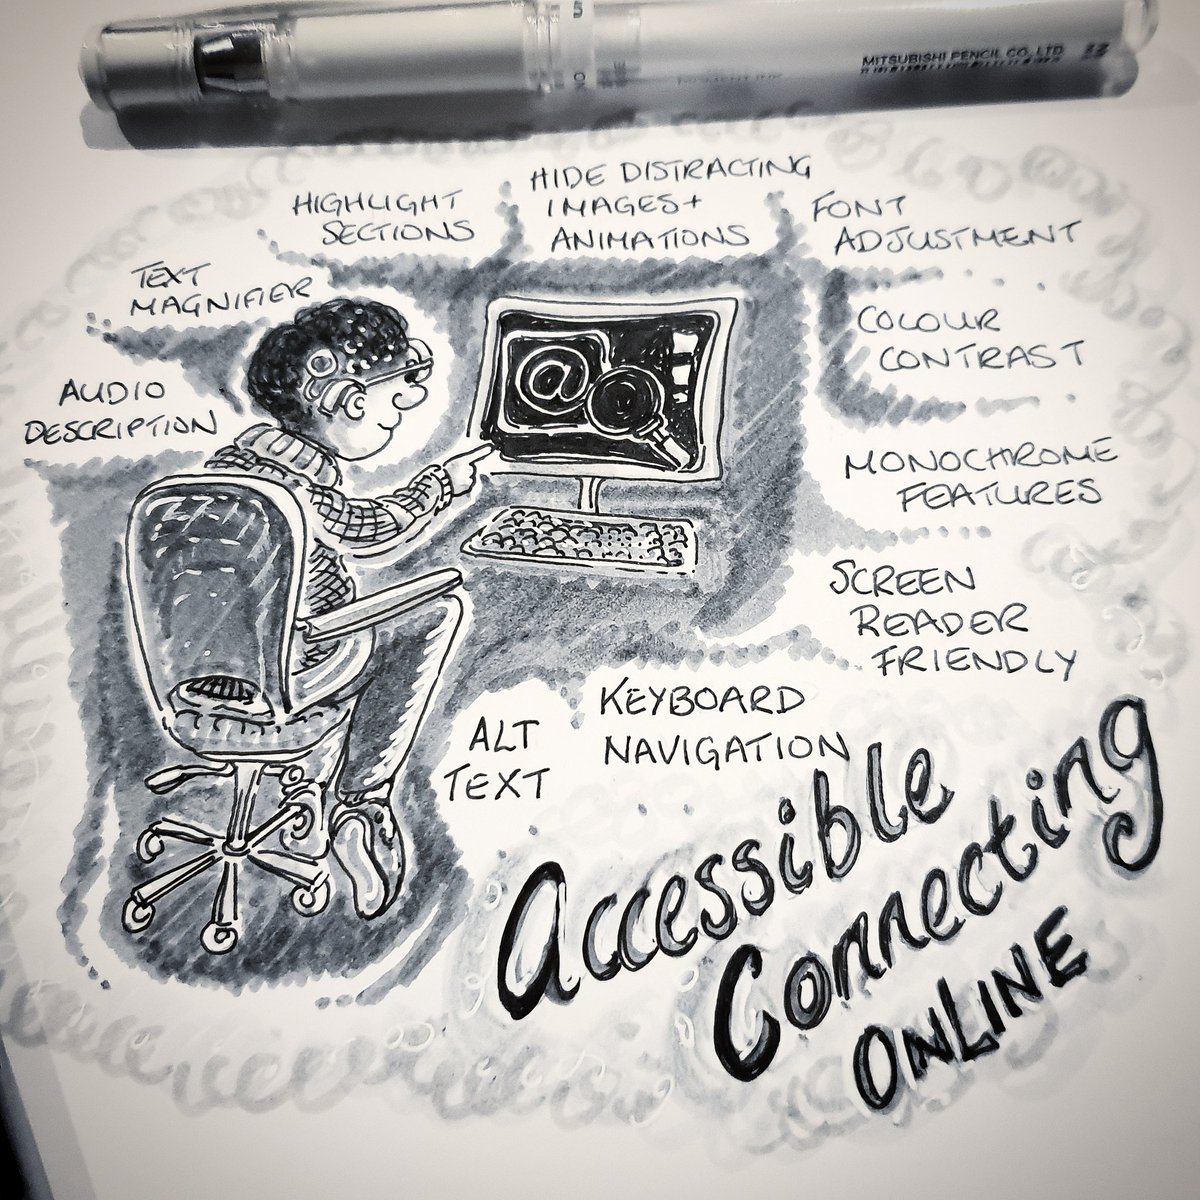 MITSUBISHI PENCIL CO., LTD
HIGHLIGHT
SECTIONS
HIDE DISTRACTING
IMAGES+
ANIMATIONS
FONT
ADJUSTMENT
TEXT
MAGNIFIER
COLOUR
CONTRAST
AUDIO
DESCRIPTION
@
MONOCHROME
FEATURES
SCREEN
READER
FRIENDLY
KEYBOARD
NAVIGATION
ALT
TEXT
Accessible
Connecting
ONLINE